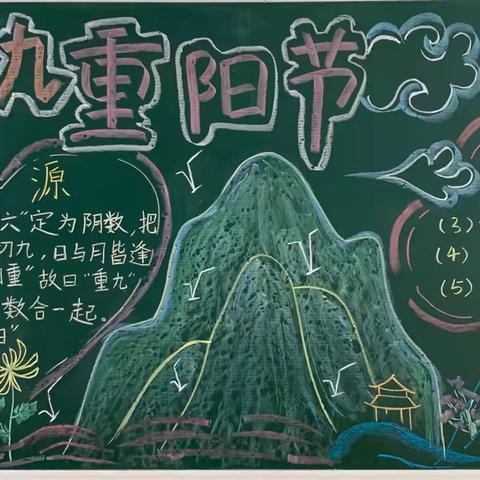 九重阳节
源
六"定为阴数,把
九,日与月皆逢
重"故曰"重九",
数合一起。
日"
(3)
(4)
(5)